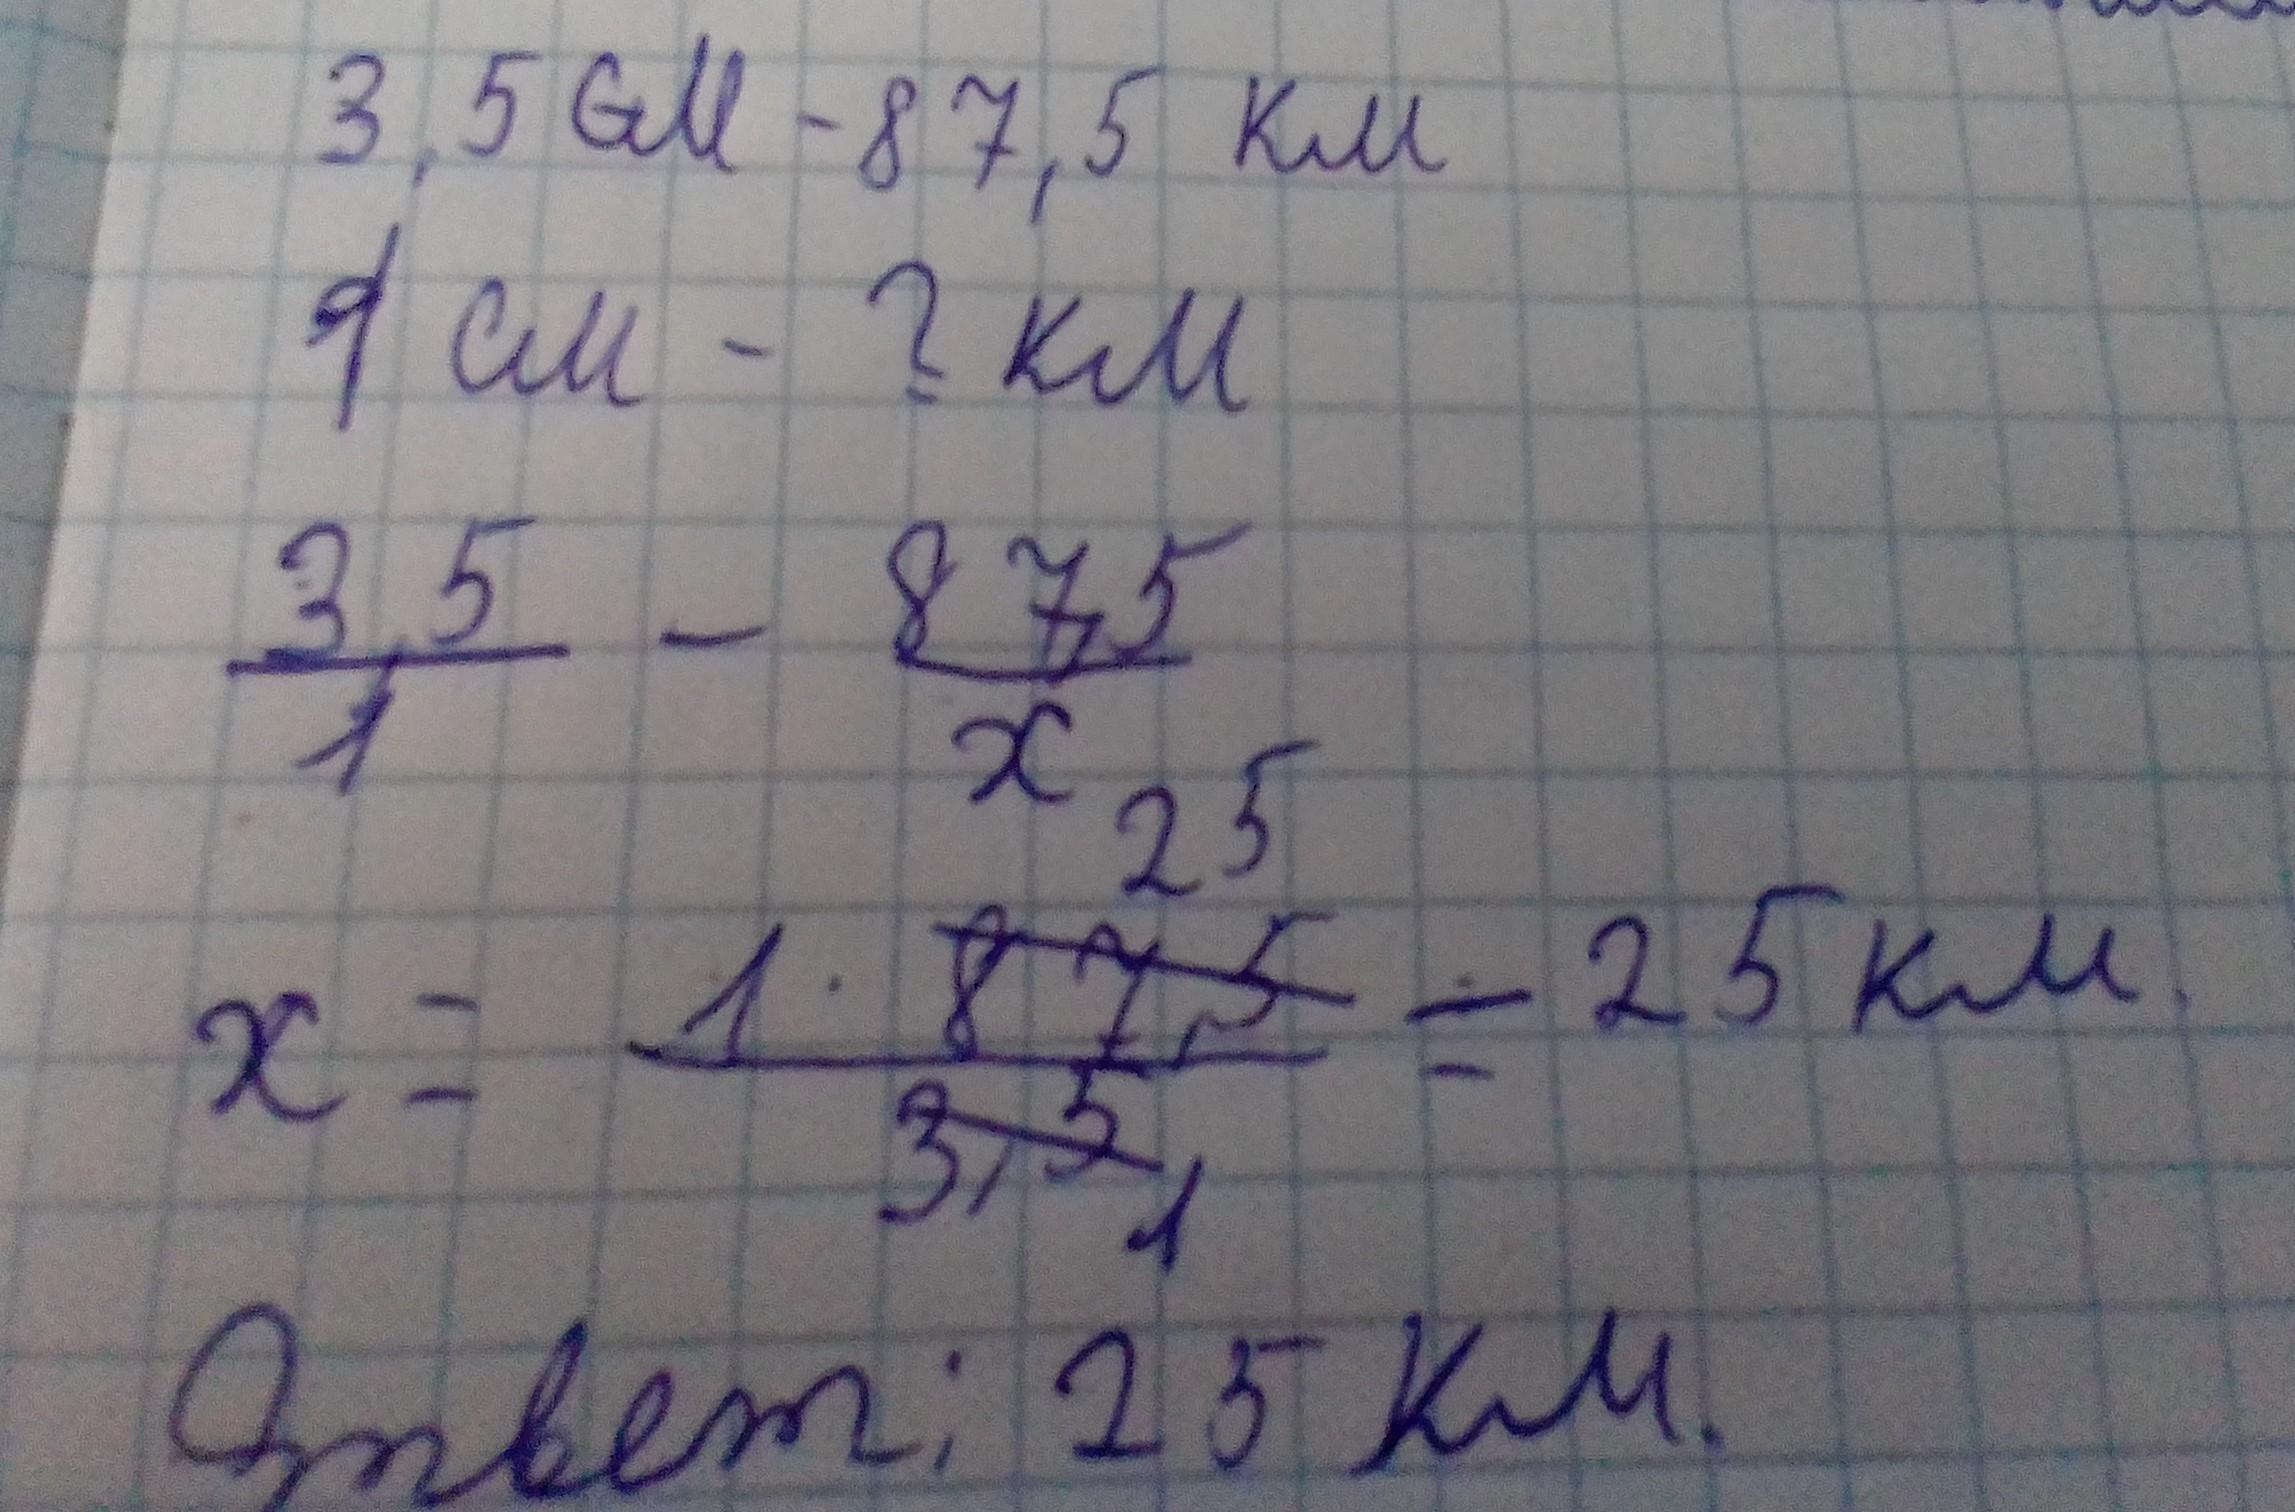 3,5 см - 87,5 км
1 см - ? км
3,5/1 - 87,5/x
25
x = 1 · 87,5/3,5 = 25 км.
1
Ответ: 25 км.